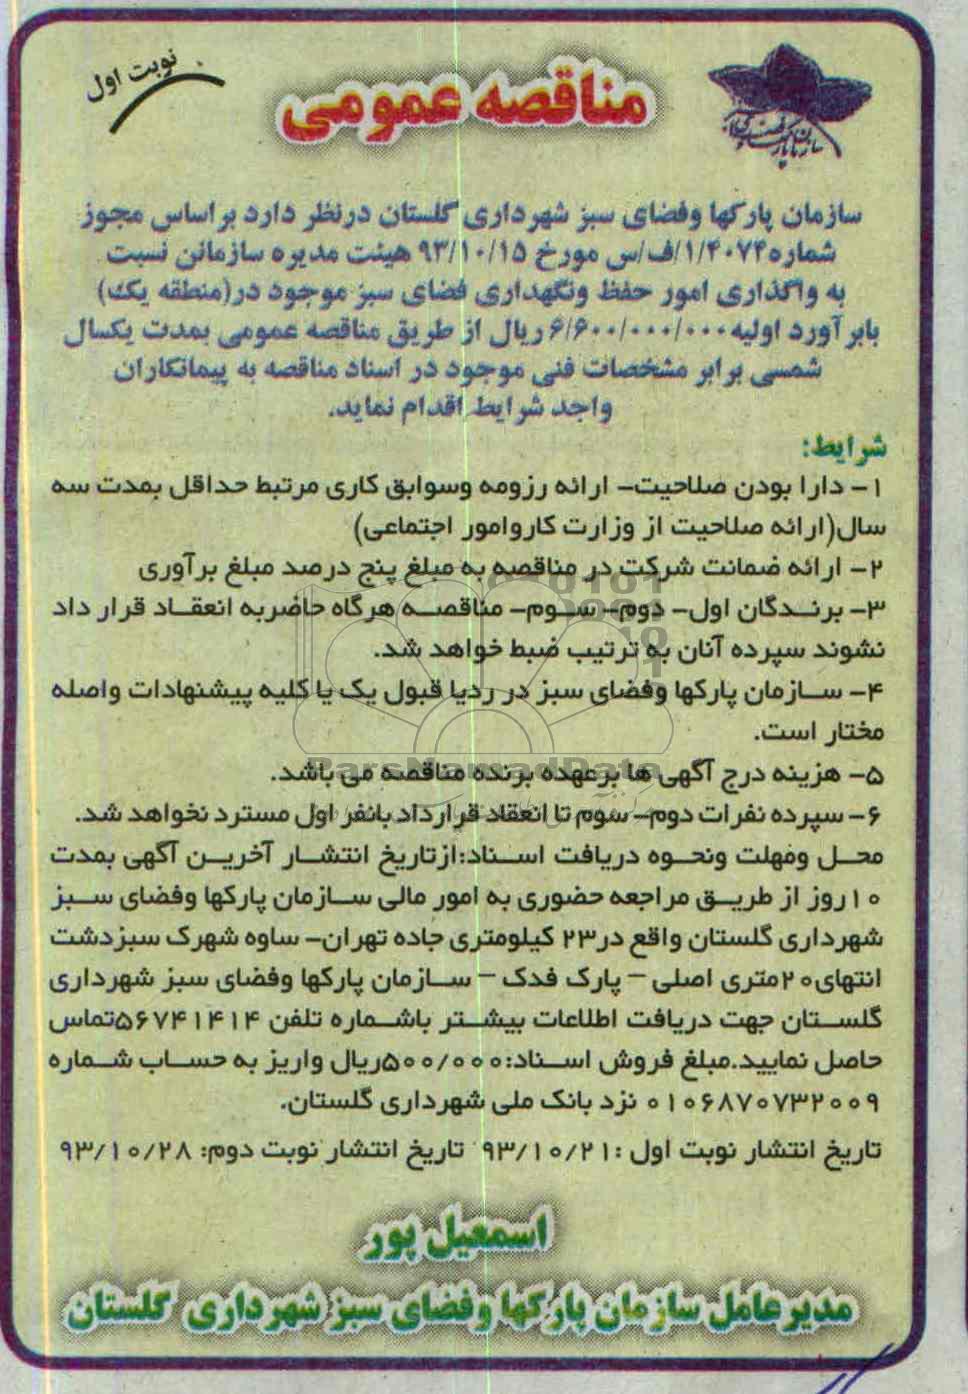 نوبت اول
مناقصه عمومی
سازمان پارکها وفضای سبز شهرداری گلستان درنظر دارد براساس مجوز
شماره۱/۴۰۷۴/ف/س مورخ ۹۳/۱۰/۱۵ هیئت مدیره سازمانن نسبت
به واگذاری امور حفظ ونگهداری فضای سبز موجود در(منطقه یک)
بابرآورد اولیه۶/۶۰۰/۰۰۰/۰۰۰ریال از طریق مناقصه عمومی بمدت یکسال
شمسی برابر مشخصات فنی موجود در اسناد مناقصه به پیمانکاران
واجد شرایط اقدام نماید.
شرایط:
۱- دارا بودن صلاحیت- ارائه رزومه وسوابق کاری مرتبط حداقل بمدت سه
سال(ارائه صلاحیت از وزارت کاروامور اجتماعی)
۲- ارائه ضمانت شرکت در مناقصه به مبلغ پنج درصد مبلغ برآوری
۳- برندگان اول- دوم- سوم- مناقصه هرگاه حاضربه انعقاد قرار داد
نشوند سپرده آنان به ترتیب ضبط خواهد شد.
۴- سازمان پارکها وفضای سبز در ردیا قبول یک یا کلیه پیشنهادات واصله
مختار است.
۵- هزینه درج آگهی ها برعهده برنده مناقصه می باشد.
۶- سپرده نفرات دوم- سوم تا انعقاد قرارداد بانفر اول مسترد نخواهد شد.
محل ومهلت ونحوه دریافت اسناد:ازتاریخ انتشار آخرین آگهی بمدت
۱۰روز از طریق مراجعه حضوری به امور مالی سازمان پارکها وفضای سبز
شهرداری گلستان واقع در۲۳ کیلومتری جاده تهران- ساوه شهرک سبزدشت
انتهای۲۰متری اصلی – پارک فدک – سازمان پارکها وفضای سبز شهرداری
گلستان جهت دریافت اطلاعات بیشتر باشماره تلفن ۵۶۷۴۱۴۱۴تماس
حاصل نمایید.مبلغ فروش اسناد:۵۰۰/۰۰۰ریال واریز به حساب شماره
۰۱۰۶۸۷۰۷۳۲۰۰۹ نزد بانک ملی شهرداری گلستان.
تاریخ انتشار نوبت اول :۹۳/۱۰/۲۱ تاریخ انتشار نوبت دوم: ۹۳/۱۰/۲۸
اسمعیل پور
مدیرعامل سازمان پارکها وفضای سبز شهرداری گلستان
ParsNamadData